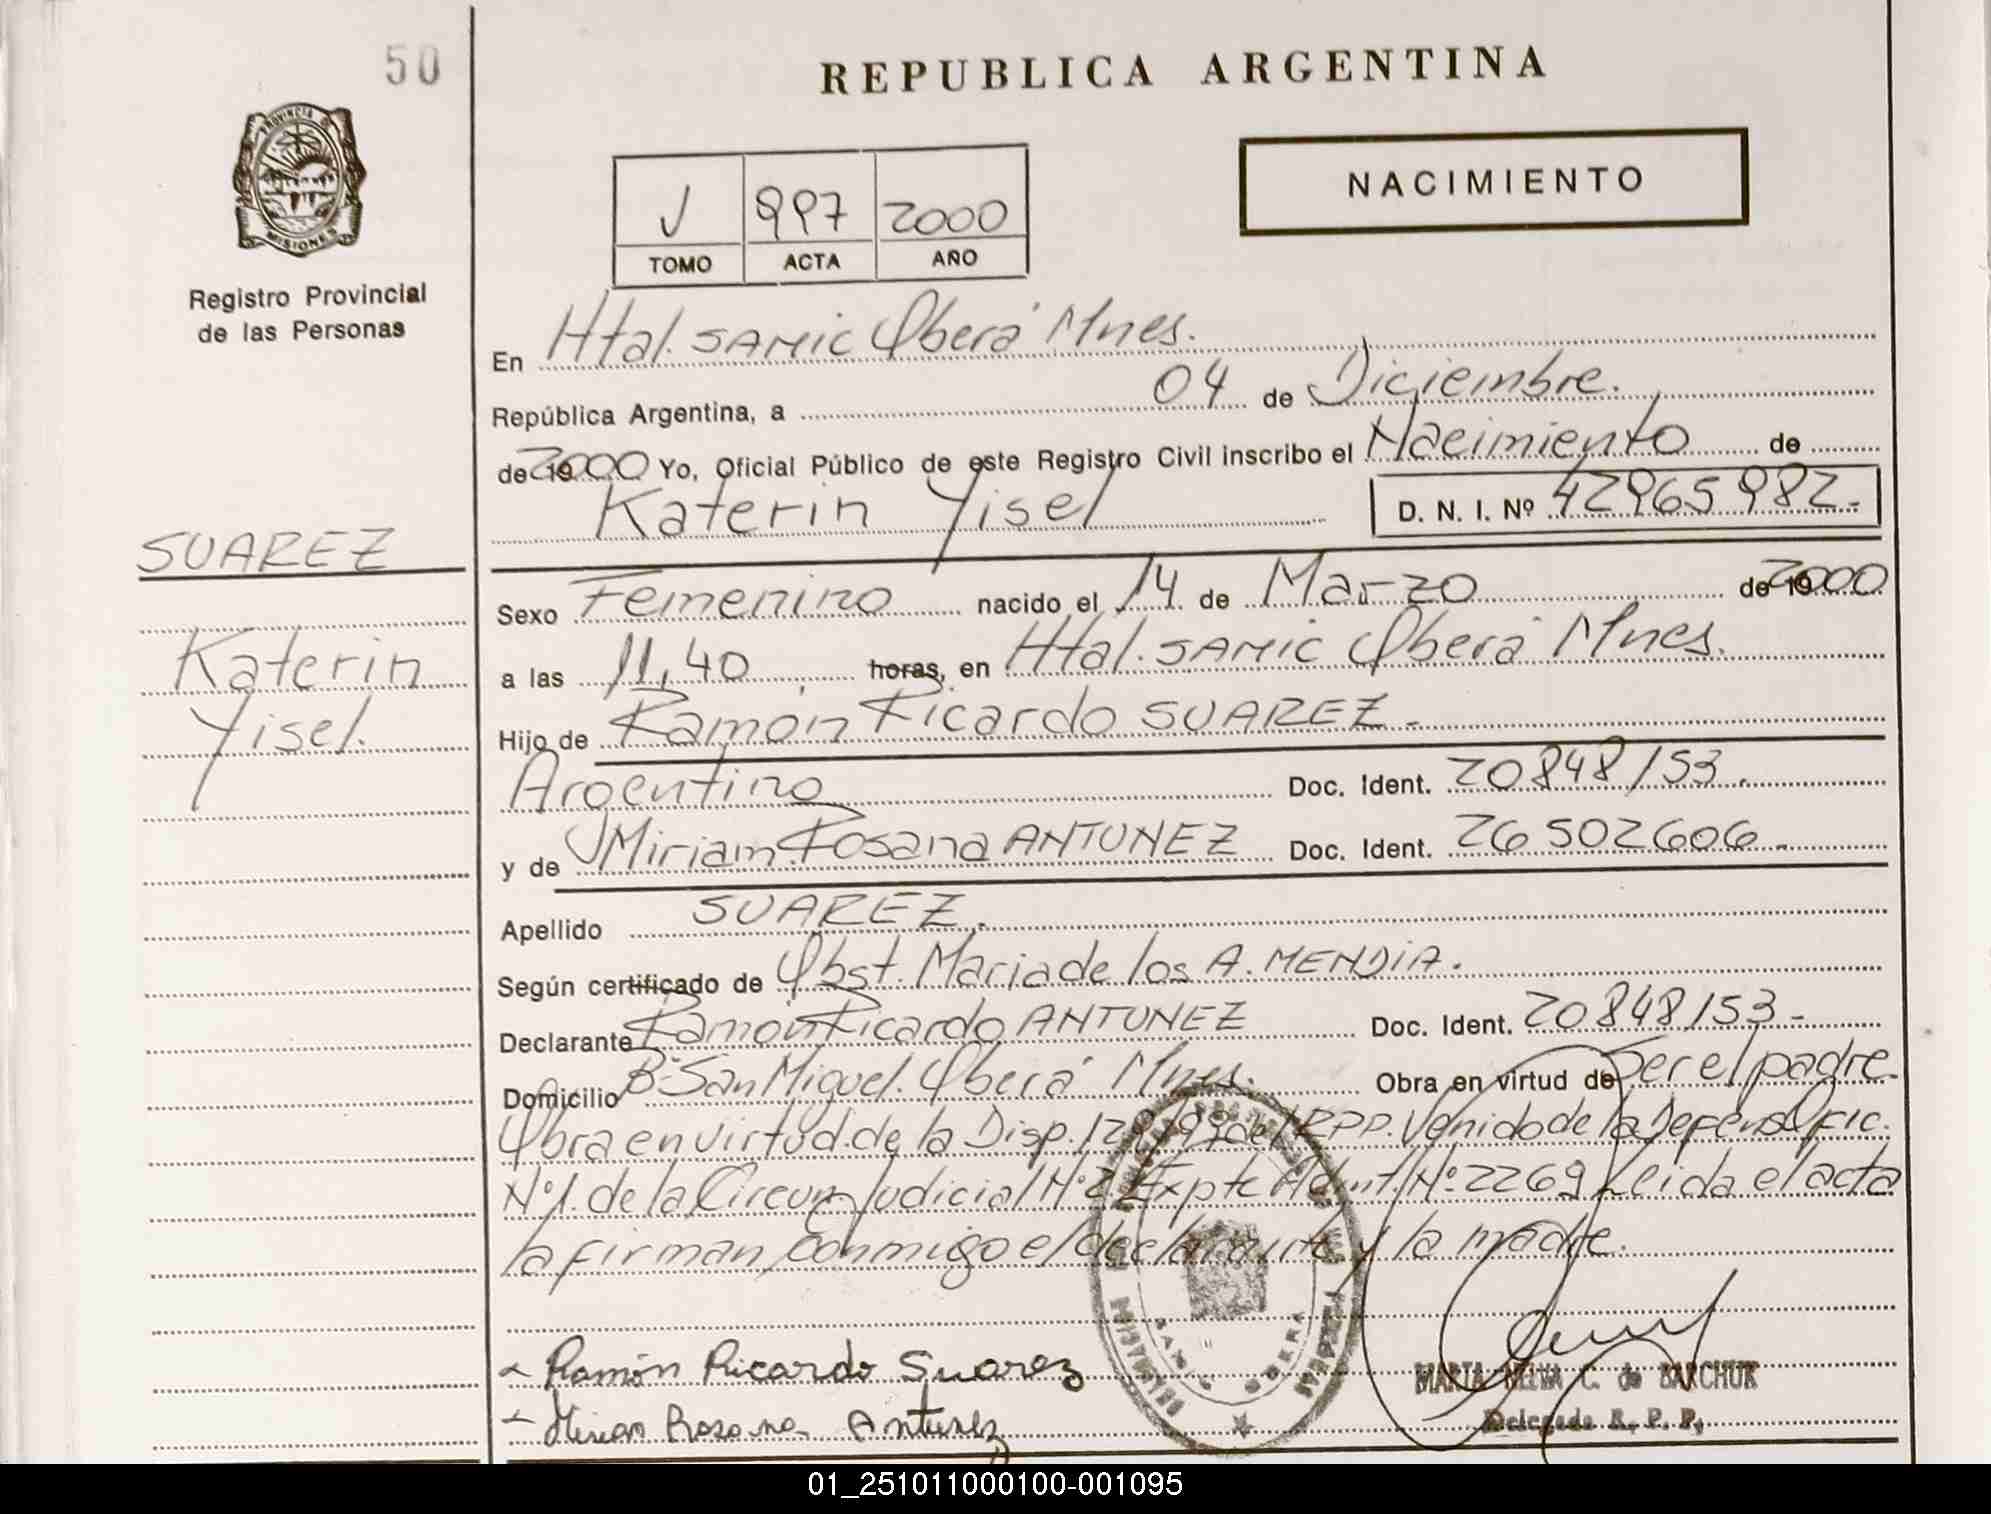 50
REPUBLICA ARGENTINA
PROVINCIA DE
MISIONES
Registro Provincial
de las Personas
V 997 2000
TOMO ACTA AÑO
NACIMIENTO
En Htal. SAMIC Oberá Mnes.
República Argentina, a 04 de Diciembre.
de 2000 Yo, Oficial Público de este Registro Civil inscribo el Nacimiento de
Katerin Yisel D. N. I. Nº 42965982.-
SUAREZ
Katerin
Yisel.
Sexo Femenino nacido el 14 de Marzo de 2000
a las 11,40 horas, en Htal. SAMIC Oberá Mnes.
Hijo de Ramón Ricardo SUAREZ.-
Argentino Doc. Ident. 20848153.
y de Miriam Rosana ANTUNEZ Doc. Ident. 26502606.-
Apellido SUAREZ.
Según certificado de Obst. Maria de los A. MENDIA.
Declarante Ramón Ricardo ANTUNEZ Doc. Ident. 20848153.-
Domicilio Bº San Miguel. Oberá Mnes. Obra en virtud de Ser el padre.
Obra en virtud de la Disp. del RPP. Venido de la Defens. Ofic.
Nº1. de la Circun. Judicial Nº2 Expte Nº 2269 Leida el acta
la firman conmigo el declarante y la madre.
Ramón Ricardo Suarez
Mirian Rosana Antunez
MARIA NELVA C. de BARCHUK
Delegada R. P. P.
01_251011000100-001095